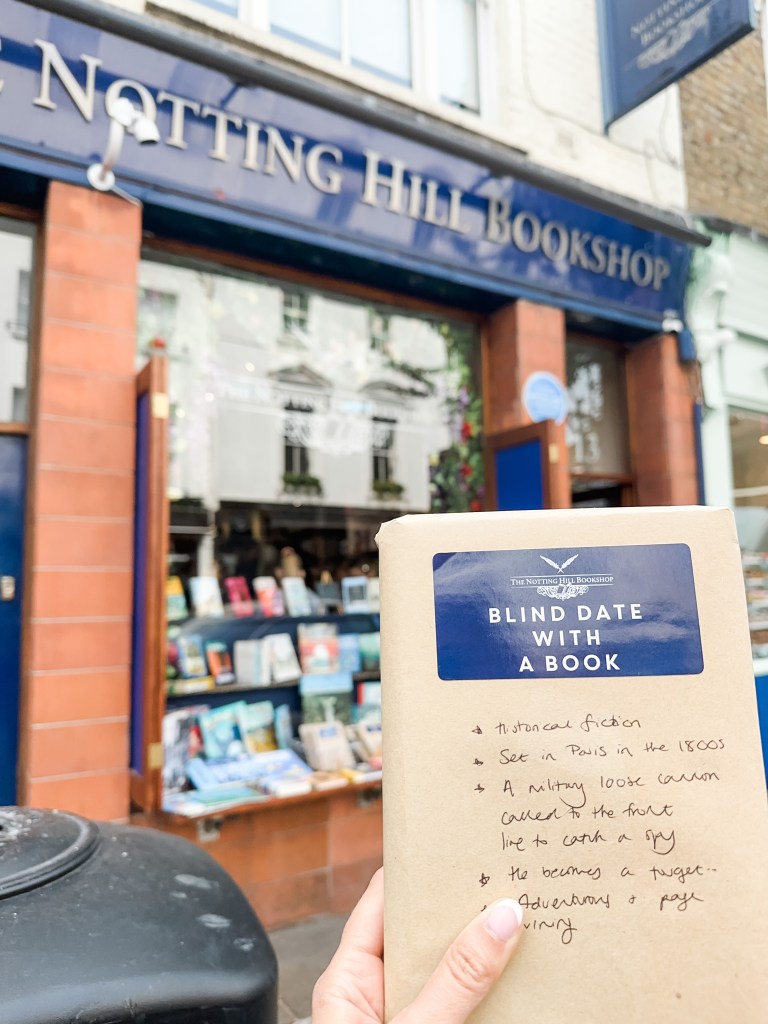 E NOTTING HILL BOOKSHOP
NOTTING HILL
BOOKSHOP
13
THE NOTTING HILL BOOKSHOP
BLIND DATE
WITH
A BOOK
Historical fiction
Set in Paris in the 1800s
A military loose cannon
called to the front
line to catch a spy
He becomes a target..
Adventurous + page